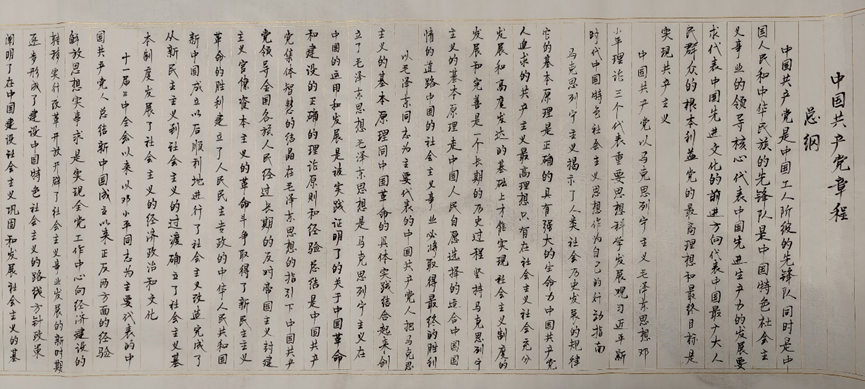 中国共产党章程
总纲
中国共产党是中国工人阶级的先锋队同时是中
国人民和中华民族的先锋队是中国特色社会主
义事业的领导核心代表中国先进生产力的发展要
求代表中国先进文化的前进方向代表中国最广大人
民群众的根本利益党的最高理想和最终目标是
实现共产主义
中国共产党以马克思列宁主义毛泽东思想邓
小平理论三个代表重要思想科学发展观习近平新
时代中国特色社会主义思想作为自己的行动指南
马克思列宁主义揭示了人类社会历史发展的规律
它的基本原理是正确的具有强大的生命力中国共产党
人追求的共产主义最高理想只有在社会主义社会充分
发展和高度发达的基础上才能实现社会主义制度的
发展和完善是一个长期的历史过程坚持马克思列宁
主义的基本原理走中国人民自愿选择的适合中国国
情的道路中国的社会主义事业必将取得最终的胜利
以毛泽东同志为主要代表的中国共产党人把马克思
主义的基本原理同中国革命的具体实践结合起来创
立了毛泽东思想毛泽东思想是马克思列宁主义在
中国的运用和发展是被实践证明了的关于中国革命
和建设的正确的理论原则和经验总结是中国共产
党集体智慧的结晶在毛泽东思想的指引下中国共产
党领导全国各族人民经过长期的反对帝国主义封建
主义官僚资本主义的革命斗争取得了新民主主义
革命的胜利建立了人民民主专政的中华人民共和国
新中国成立以后顺利地进行了社会主义改造完成了
从新民主主义到社会主义的过渡确立了社会主义基
本制度发展了社会主义的经济政治和文化
十一届三中全会以来以邓小平同志为主要代表的中
国共产党人总结新中国成立以来正反两方面的经验
解放思想实事求是实现全党工作中心向经济建设的
转移实行改革开放开辟了社会主义事业发展的新时期
逐步形成了建设中国特色社会主义的路线方针政策
阐明了在中国建设社会主义巩固和发展社会主义的基